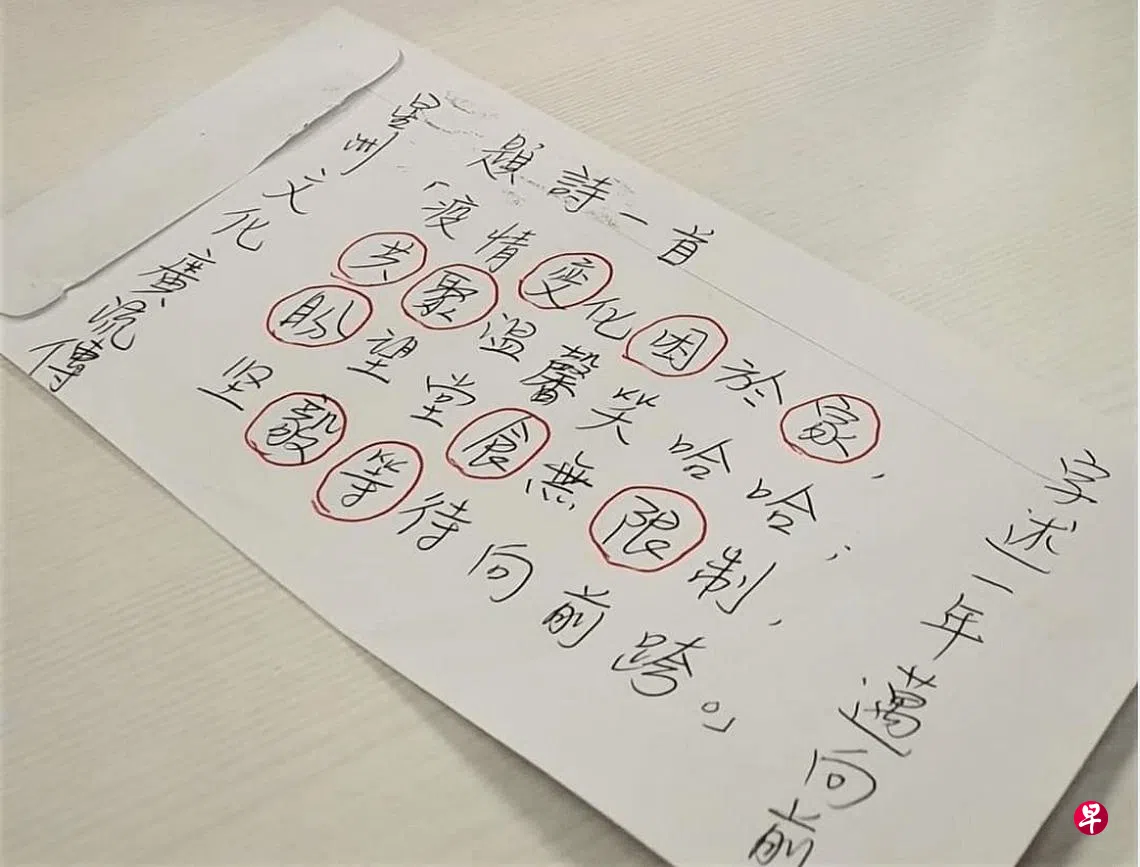 題詩一首
「疫情变化困於家，
共聚温馨笑哈哈；
盼望堂食無限制，
坚毅等待向前跨。」
字述一年邁向前
星洲文化廣流傳
早